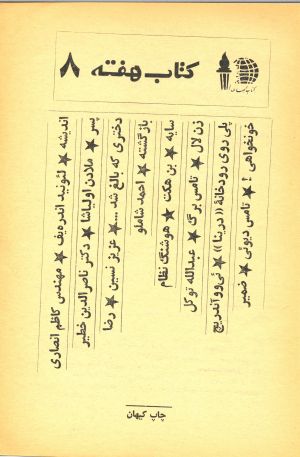 کتاب هفته ۸
خونخواهی! ★ تامس دیوئی ★ ضمیر
پلی روی رودخانهٔ «درینا» ★ ئی‌وو آندریچ
زن لال ★ تامس برگ ★ عبدالله توکل
سایه ★ بن هکت ★ هوشنگ نظام
بازگشته ★ احمد شاملو
دختری که بالغ شد... ★ عزیز نسین ★ رضا
پسر ★ ملادن اولیاشا ★ دکتر ناصرالدین خطیر
اندیشه ★ لئونید آندره‌یف ★ مهندس کاظم انصاری
چاپ کیهان